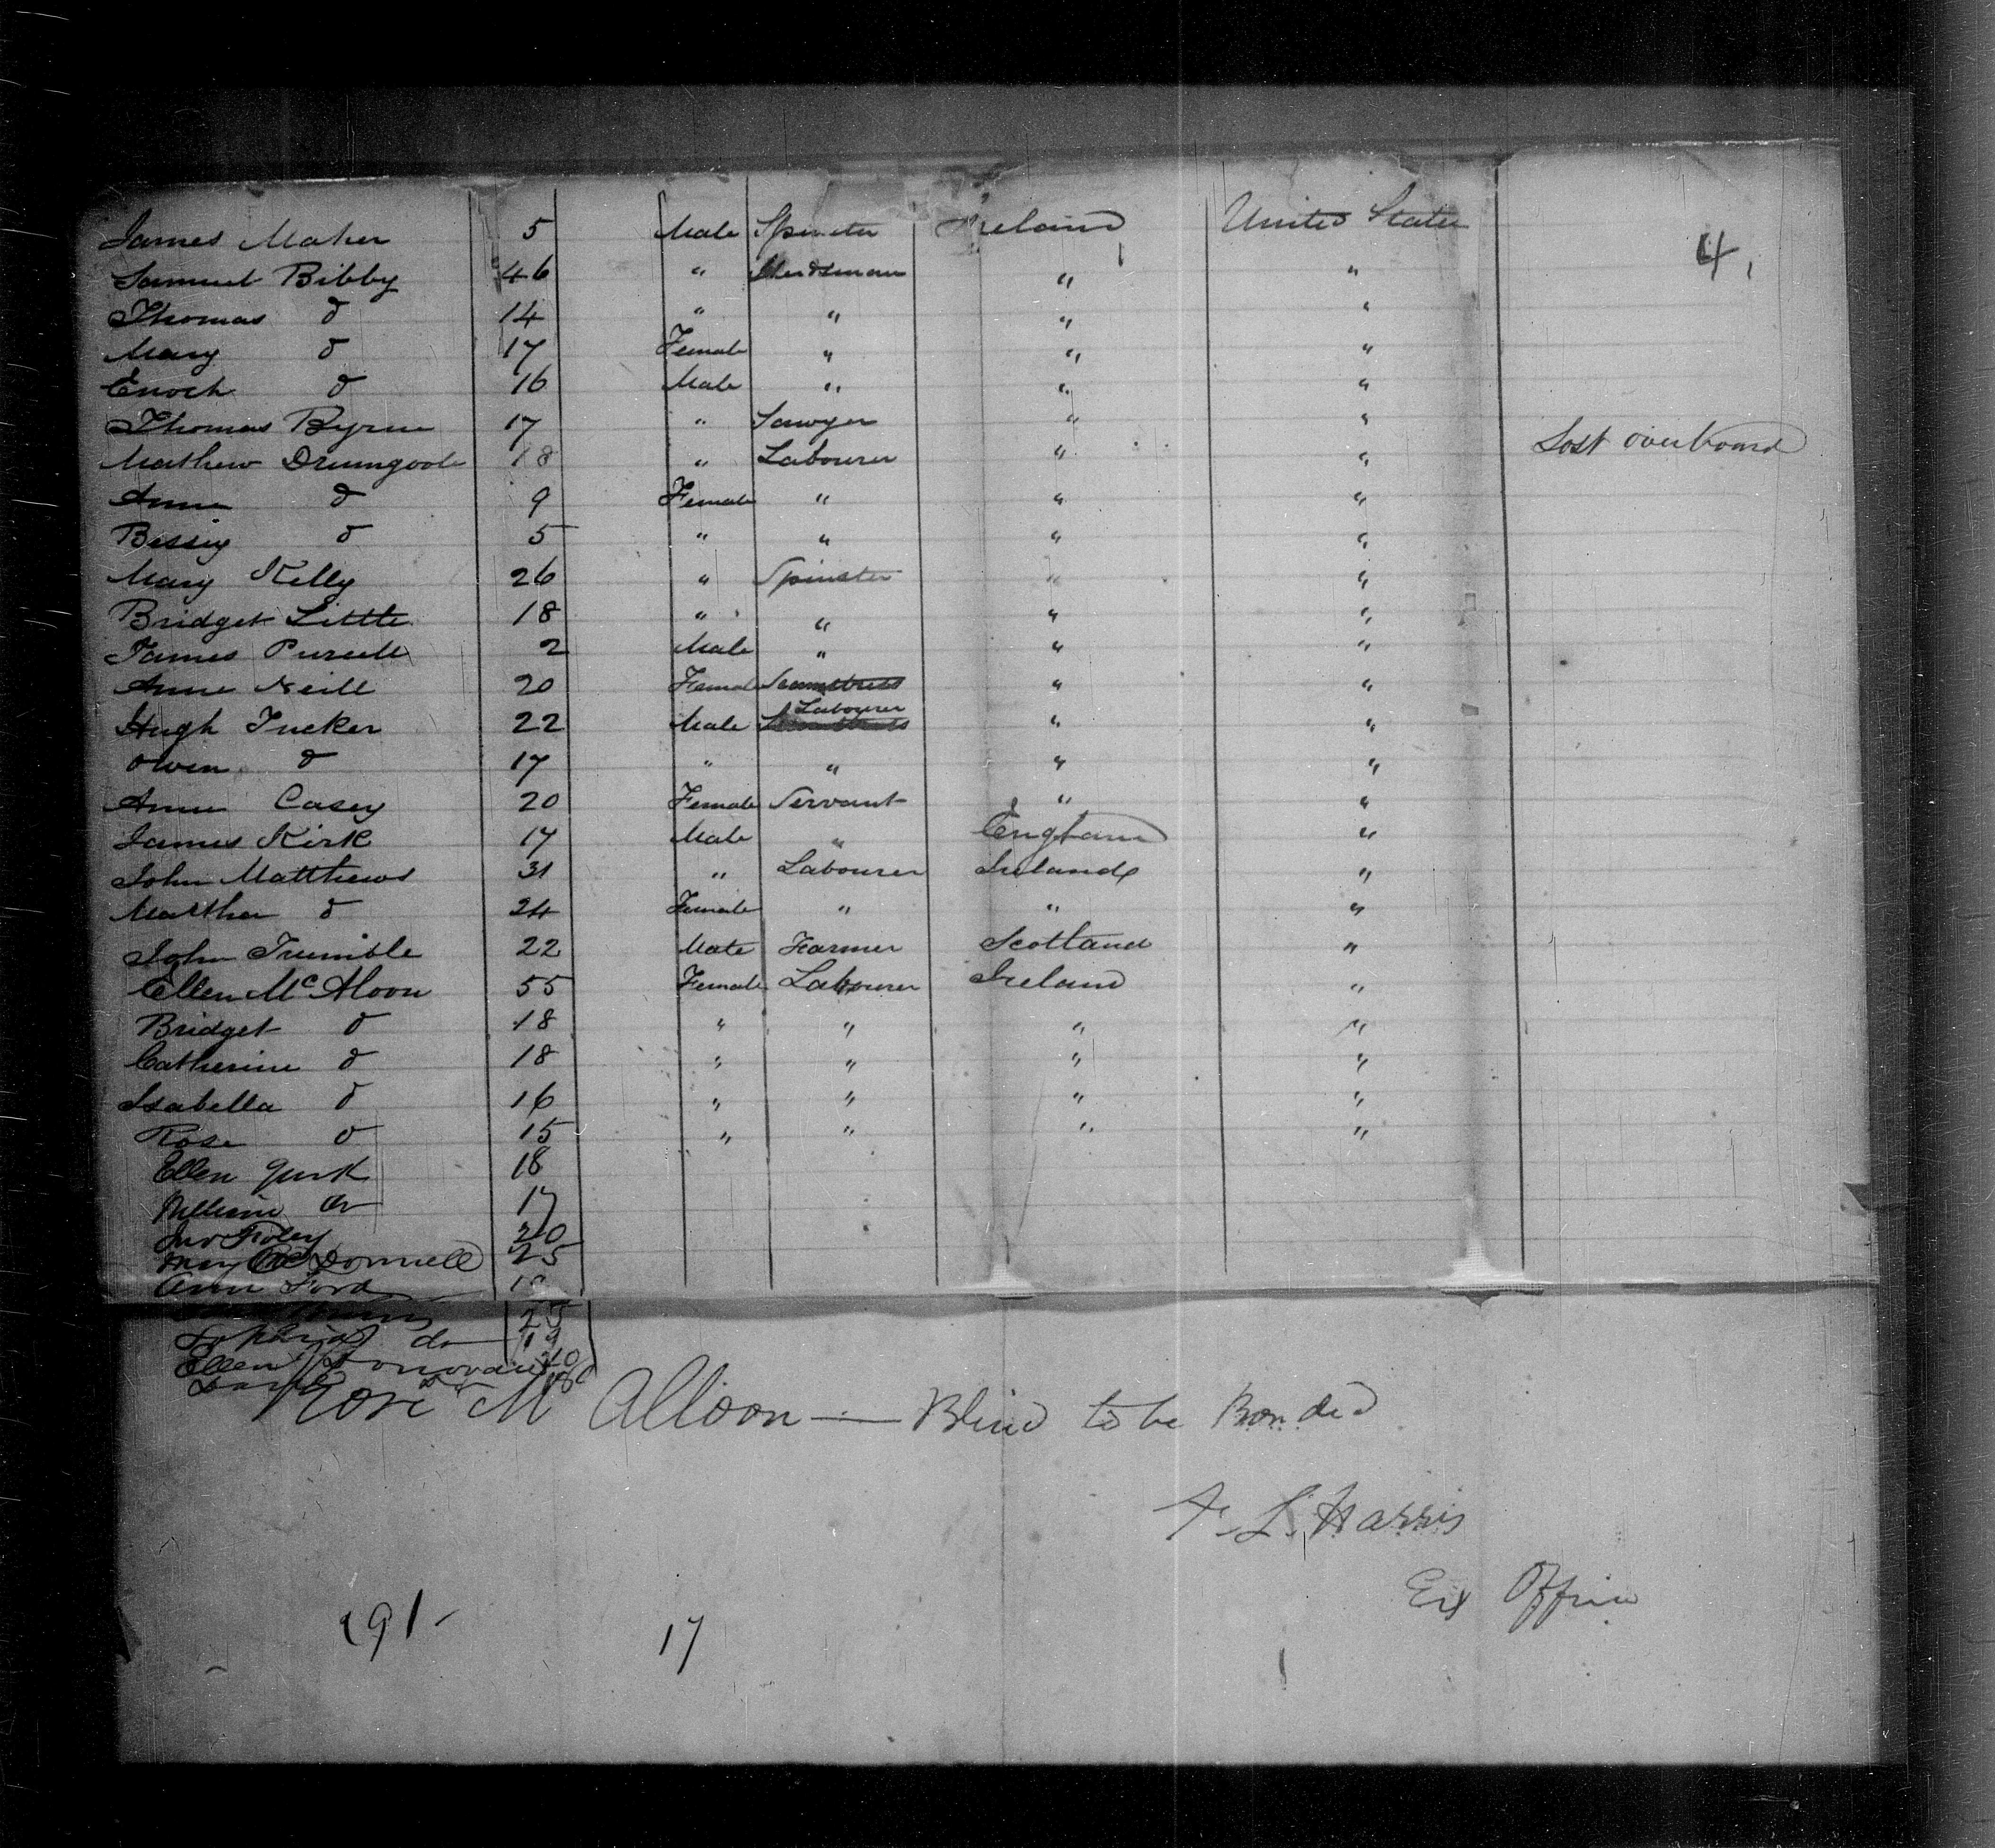 James Maher 5 Male Spinster Ireland United States
4
Samuel Bibby 46 " Herdsman " "
Thomas do 14 " " " "
Mary do 17 Female " " "
Enoch do 16 Male " " "
Thomas Byrne 17 " Sawyer " "
Mathew Drumgoole 18 " Labourer " " Lost overboard
Anne do 9 Female " " "
Bessy do 5 " " " "
Mary Kelly 26 " Spinster " "
Bridget Little 18 " " " "
James Purcell 2 Male " " "
Anne Neill 20 Female Seamstress " "
Hugh Tucker 22 Male Labourer " "
Owen do 17 " " " "
Anne Casey 20 Female Servant " "
James Kirk 17 Male " England "
John Matthews 31 " Labourer Ireland "
Martha do 24 Female " " "
John Trumble 22 Male Farmer Scotland "
Ellen McAloon 55 Female Labourer Ireland "
Bridget do 18 " " " "
Catherine do 18 " " " "
Isabella do 16 " " " "
Rose do 15 " " " "
Ellen 18
William do 17
Jno Foley 20
Mary McDonnell 25
Ann Ford
25
Sophia do 19
Ellen Donovan 20
Rose Mc Alloon — Blind to be Bonded
F. L. Harris
Ex Office
191-
17